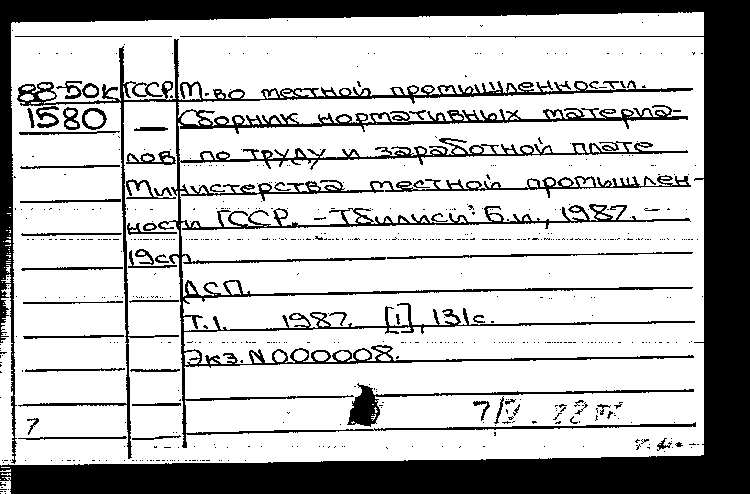 88-50к ГССР. М-во местной промышленности.
1580 — Сборник нормативных материа-
лов по труду и заработной плате
Министерства местной промышлен-
ности ГССР. - Тбилиси: Б.и., 1987. -
19см.
ДСП.
Т.1. 1987. [1], 131с.
Экз. N 000008.
7/IV. 88
7